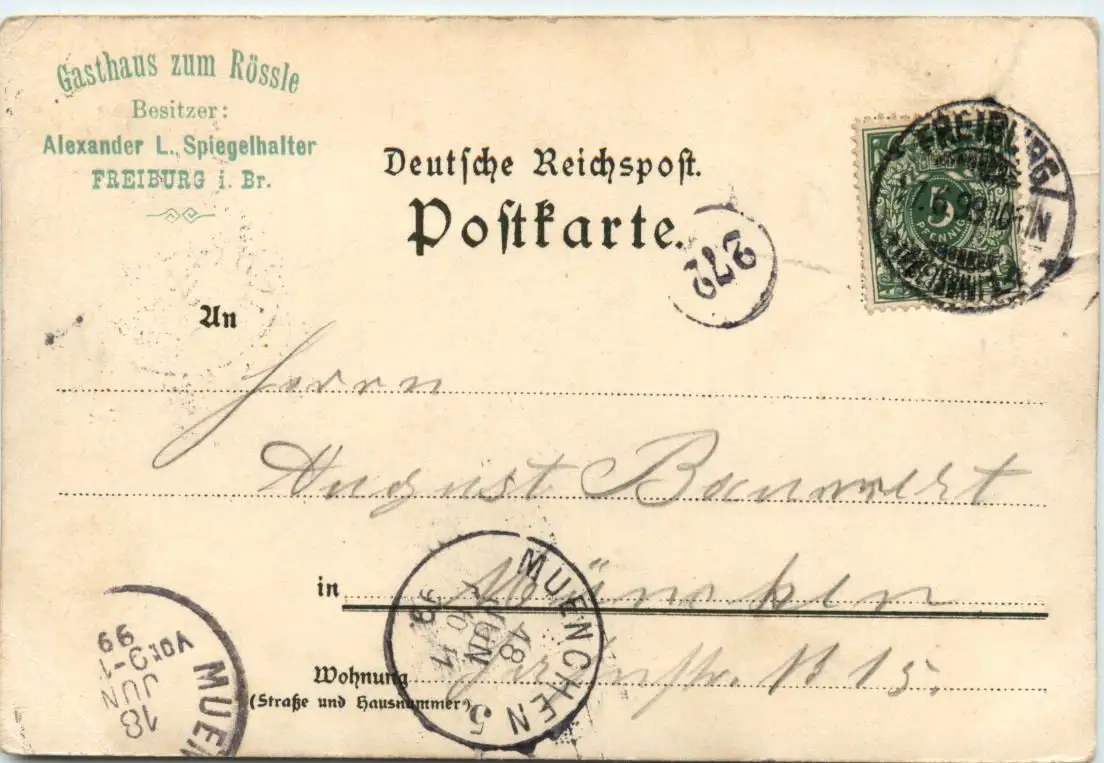 Gasthaus zum Rössle
Besitzer:
Alexander L. Spiegelhalter
FREIBURG i. Br.
Deutsche Reichspost.
Postkarte.
272
FREIBURG
17.6.99.10-11N
5
PFENNIG
An
Herrn
August Bauwerkt
in München
Wohnung 15.
(Straße und Hausnummer)
MUENCHEN 5
18
JUN
99
MUEN
18
JUN
Vorm
99